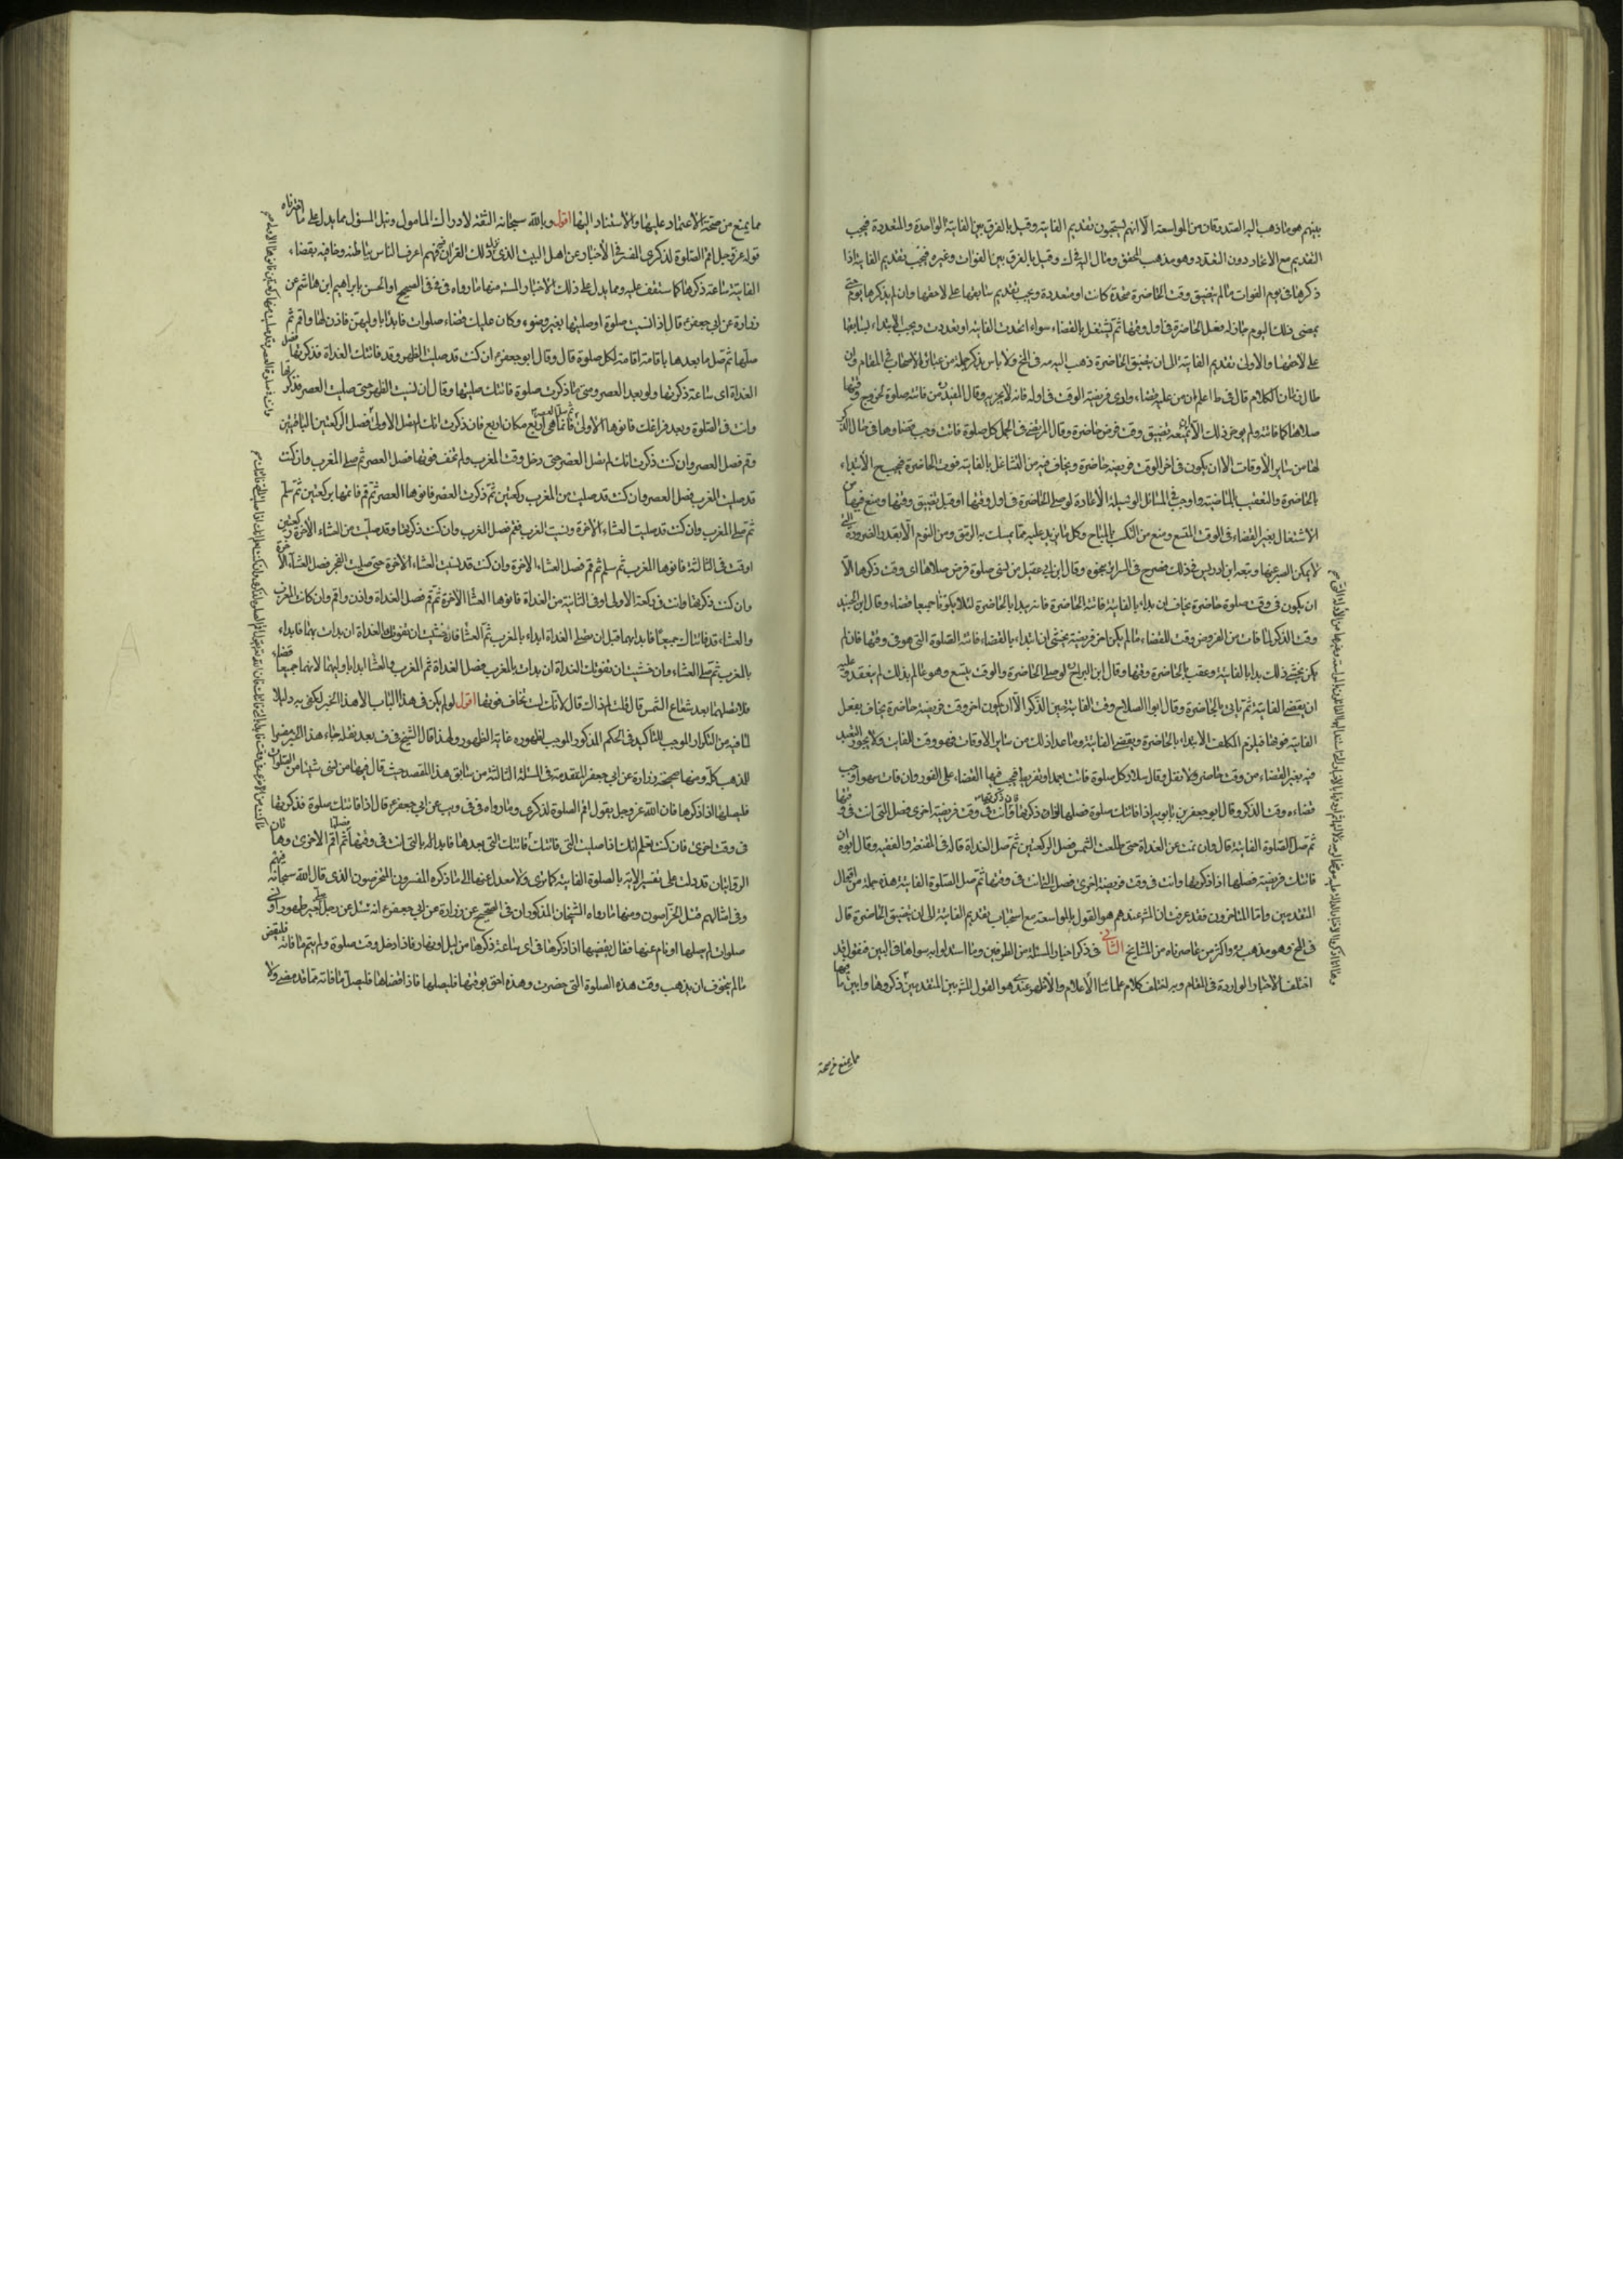 بينهم هو ما ذهب اليه الصدوقان من المواسعة الا انهم يستحبون تقديم الفايتة وقيل بالفرق بين الفايتة الواحدة والمتعددة فيجب
التقديم مع الاتحاد دون التعدد وهو مذهب المحقق ومال اليه في ك وقيل بالفرق بين الفوات وغيره فيجب تقديم الفايتة اذا
ذكرها في يوم الفوات ما لم يتضيق وقت الحاضرة متحدة كانت او متعددة ويجب تقديم سابقها على لاحقها وان لم يذكرها حتى
يمضى ذلك اليوم جاز له فعل الحاضرة في اول وقتها ثم يشتغل بالقضاء سواء اتحدت الفايتة او تعددت ويجب الابتداء بسابقها
على لاحقها والاولى تقديم الفايتة الى ان يتضيق الحاضرة ذهب اليه مه في المخ ولا باس بذكر جملة من عبائر الاصحاب في المقام وان
طال زمان الكلام قال في ط اعلم ان من عليه قضاء وادى فريضة الوقت في اوله فانه لا يجزيه وقال المفيد من فاتته صلوة لخروج وقتها
صلاها كما فاتته ولم يوخر ذلك الا ان يمنعه تضيق وقت فرض حاضرة وقال المرتضى في الجمل كل صلوة فاتت وجب قضاوها في حال الذكر
لها من ساير الاوقات الا ان يكون في اخر الوقت فريضة حاضرة ويخاف فيه من التشاغل بالفايتة فوت الحاضرة فيجب ح الابتداء
بالحاضرة والتعقيب بالماضية واوجب في المسائل الرسية الاعادة لو صلى الحاضرة في اول وقتها او قبل تضيق وقتها ومنع فيها من
الاشتغال بغير القضاء في الوقت المتسع ومنع من التكسب بالمباح وكل ما يزيد عليه مما يمسك به الرمق ومن النوم الا بقدر الضرورة التي
لا يمكن الصبر عنها وتبعه ابن ادريس في ذلك مصرح في السرائر بنحوه وقال ابن ابي عقيل من نسى صلوة فرض صلاها اى وقت ذكرها الا
ان يكون في وقت صلوة حاضرة يخاف ان بداء بالفايتة فاتته الحاضرة فانه يبدا بالحاضرة لئلا يكونا جميعا قضاء وقال ابن الجنيد
وقت الذكر لما فات من الفروض وقت للقضاء ما لم يكن اخر فريضة يخشى ان ابتداء بالقضاء فاتته الصلوة التى هو في وقتها فان لم
يكن يخشى ذلك بدا بالفايتة وعقب بالحاضرة وقتها وقال ابن البراج لو صلى الحاضرة والوقت متسع وهو عالم بذلك لم ينعقد وعليه
ان يقضى الفايتة ثم ياتى بالحاضرة وقال ابو الصلاح وقت الفايتة حين الذكر الا ان يكون اخر وقت فريضة حاضرة يخاف بفعل
الفايتة فوتها فيلزم المكلف الابتداء بالحاضرة ويقضى الفايتة وما عدا ذلك من ساير الاوقات فهو وقت الفايت ولا يجوز التعبد
فيه بغير القضاء من وقت حاضر ولا نفل وقال سلار كل صلوة فاتت بعمد او تفريط فيجب فيها القضاء على الفور وان فات سهوا وجب
قضاءه وقت الذكر وقال ابو جعفر بن بابويه اذا فاتتك صلوة فصلها اذا ذكرتها فان ذكرتها وانت في وقت فريضة اخرى فصل التى انت في وقتها
ثم صل الصلوة الفايتة قال وان نمت عن الغداة حتى طلعت الشمس فصل الركعتين ثم صل الغداة قاله في المقنعة والفقيه وقال ابوه ان
فاتتك فريضة فصلها اذا ذكرتها وانت في وقت فريضة اخرى فصل التى انت في وقتها ثم صل الصلوة الفايتة هذه جملة من اقوال
المتقدمين واما المتاخرون فقد عرفت ان المش عندهم هو القول بالمواسعة مع استحباب تقديم الفايتة الى ان يتضيق الحاضرة قال
في المخ وهو مذهب والدى واكثر من عاصرناه من المشايخ الثانى في ذكر اخبار المسئلة من الطرفين وما استدلوا به سواها في البين فنقول قد
اختلف الاخبار الواردة في المقام وبه اختلف كلام علمائنا الاعلام والاظهر عندى هو القول المش بين المتقدمين ذكروها وابين ما فيها
مما يمنع من صحة
مما يمنع من صحة الاعتماد عليها والاستناد اليها اقول وبالله سبحانه الثقة لادراك المامول ونيل المسؤل مما يدل على ما اخترناه
قوله عز وجل اقم الصلوة لذكرى المفسر في الاخبار عن اهل البيت الذى نزل ذلك القران فيهم فهم اعرف الناس بباطنه وخافيه بقضاء
الفايتة ساعة ذكرها كما ستقف عليه ومما يدل على ذلك الاخبار المستفيضة منها ما رواه في في في الصحيح او الحسن بابراهيم ابن هاشم عن
زرارة عن ابي جعفر ع قال اذا نسيت صلوة او صليتها بغير وضوء وكان عليك قضاء صلوات فابدا باوليهن فاذن لها واقم ثم
صلها ثم صل ما بعدها باقامة اقامة لكل صلوة قال وقال ابو جعفر ع ان كنت قد صليت الظهر وقد فاتتك الغداة فذكرتها فصل
الغداة اى ساعة ذكرتها ولو بعد العصر ومتى ما ذكرت صلوة فاتتك صليتها وقال ان نسيت الظهر حتى صليت العصر فذكرتها
وانت في الصلوة وبعد فراغك فانوها الاولى ثم صل العصر فانما هى اربع مكان اربع فان ذكرت انك لم تصل الاولى فصل الركعتين الباقيتين
وقم فصل العصر وان كنت ذكرت انك لم تصل العصر حتى دخل وقت المغرب ولم تخف فوتها فصل العصر ثم صل المغرب وان كنت
قد صليت المغرب فصل العصر وان كنت قد صليت من المغرب ركعتين ثم ذكرت العصر فانوها العصر ثم قم فاتمها بركعتين ثم سلم
ثم صل المغرب وان كنت قد صليت العشاء الاخرة ونسيت المغرب فقم فصل المغرب وان كنت ذكرتها وقد صليت من العشاء الاخرة ركعتين
او قمت في الثالثة فانوها المغرب ثم سلم ثم قم فصل العشاء الاخرة وان كنت قد نسيت العشاء الاخرة حتى صليت الفجر فصل العشاء الاخرة
وان كنت ذكرتها وانت في ركعة الاولى او في الثانية من الغداة فانوها العشا الاخرة ثم قم فصل الغداة واذن واقم وان كانت المغرب
والعشاء قد فاتتاك جميعا فابدا بهما قبل ان تصلى الغداة ابداء بالمغرب ثم العشا فان خشيت ان تفوتك الغداة ان بدات بهما فابداء
بالمغرب ثم صل العشاء وان خشيت ان تفوتك الغداة ان بدات بالمغرب فصل الغداة ثم المغرب والعشا ابدا باولهما لانهما جميعا قضاء
فلا تصلهما بعد شعاع الشمس قال قلت لم ذاك قال لانك لست تخاف فوتها اقول لو لم يكن في هذا الباب الا هذا الخبر لكفى به دليلا
لما فيه من التكرار الموجب للتاكيد في الحكم المذكور الموجب لظهوره غاية الظهور ولهذا قال الشيخ في ف بعد نقله جاء هذا الخبر مفسرا
للمذهب كله ومنها صحيحة زرارة عن ابي جعفر المتقدمة في المسئلة الثالثة من سابق هذا المقصد حيث قال فيها من نسى شيئا من الصلوات
فليصلها اذا ذكرها فان الله عز وجل يقول اقم الصلوة لذكرى وما رواه في في ويب عن ابي جعفر ع قال اذا فاتتك صلوة فذكرتها
في وقت اخرى فان كنت تعلم انك اذا صليت التى فاتتك فاتتك التى بعدها فابدا بالتى انت في وقتها فصلها ثم اقم الاخرى وهاتان
الروايتان قد دلت على تفسير الاية بالصلوة الفايتة كما ترى ولا معدل عنها الى ما ذكره المفسرون المتخرصون الذى قال الله سبحانه فيهم
وفي امثالهم قتل الخراصون ومنها ما رواه الشيخان المذكوران في الصحيح عن زرارة عن ابي جعفر ع انه سئل عن رجل صلى بغير طهور او نسى
صلوات لم يصلها او نام عنها فقال يقضيها اذا ذكرها في اى ساعة ذكرها من ليل او نهار فاذا دخل وقت صلوة ولم يتم ما فاته فليقض
ما لم يتخوف ان يذهب وقت هذه الصلوة التى حضرت وهذه احق بوقتها فليصلها فاذا قضاها فليصل ما فاته مما قد مضى ولا